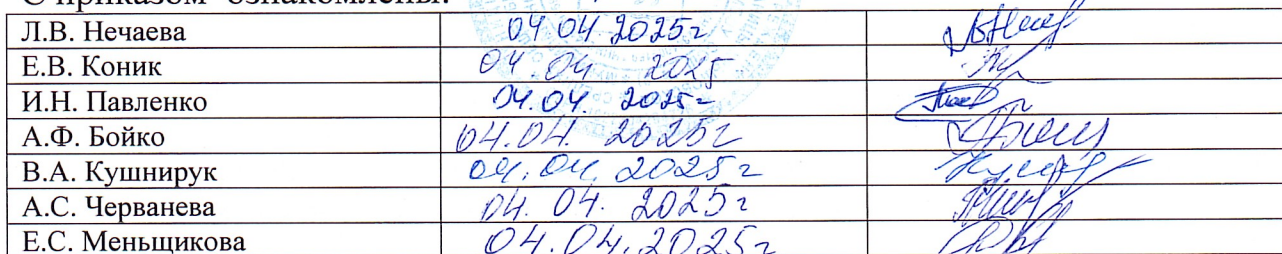 С приказом ознакомлены:
Л.В. Нечаева 04 04 2025г
Е.В. Коник 04.04 2025
И.Н. Павленко 04.04. 2025г
А.Ф. Бойко 04.04. 2025г
В.А. Кушнирук 04.04. 2025г
А.С. Черванева 04. 04. 2025г
Е.С. Меньщикова 04.04.2025г